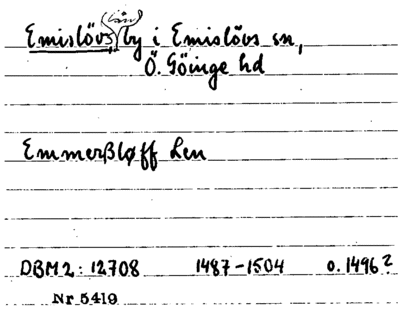 län
Emislövs, by i Emislövs sn,
Ö. Göinge hd
Emmerßløff Len
DBM2: 12708 1487-1504 o. 1496?
Nr 5419